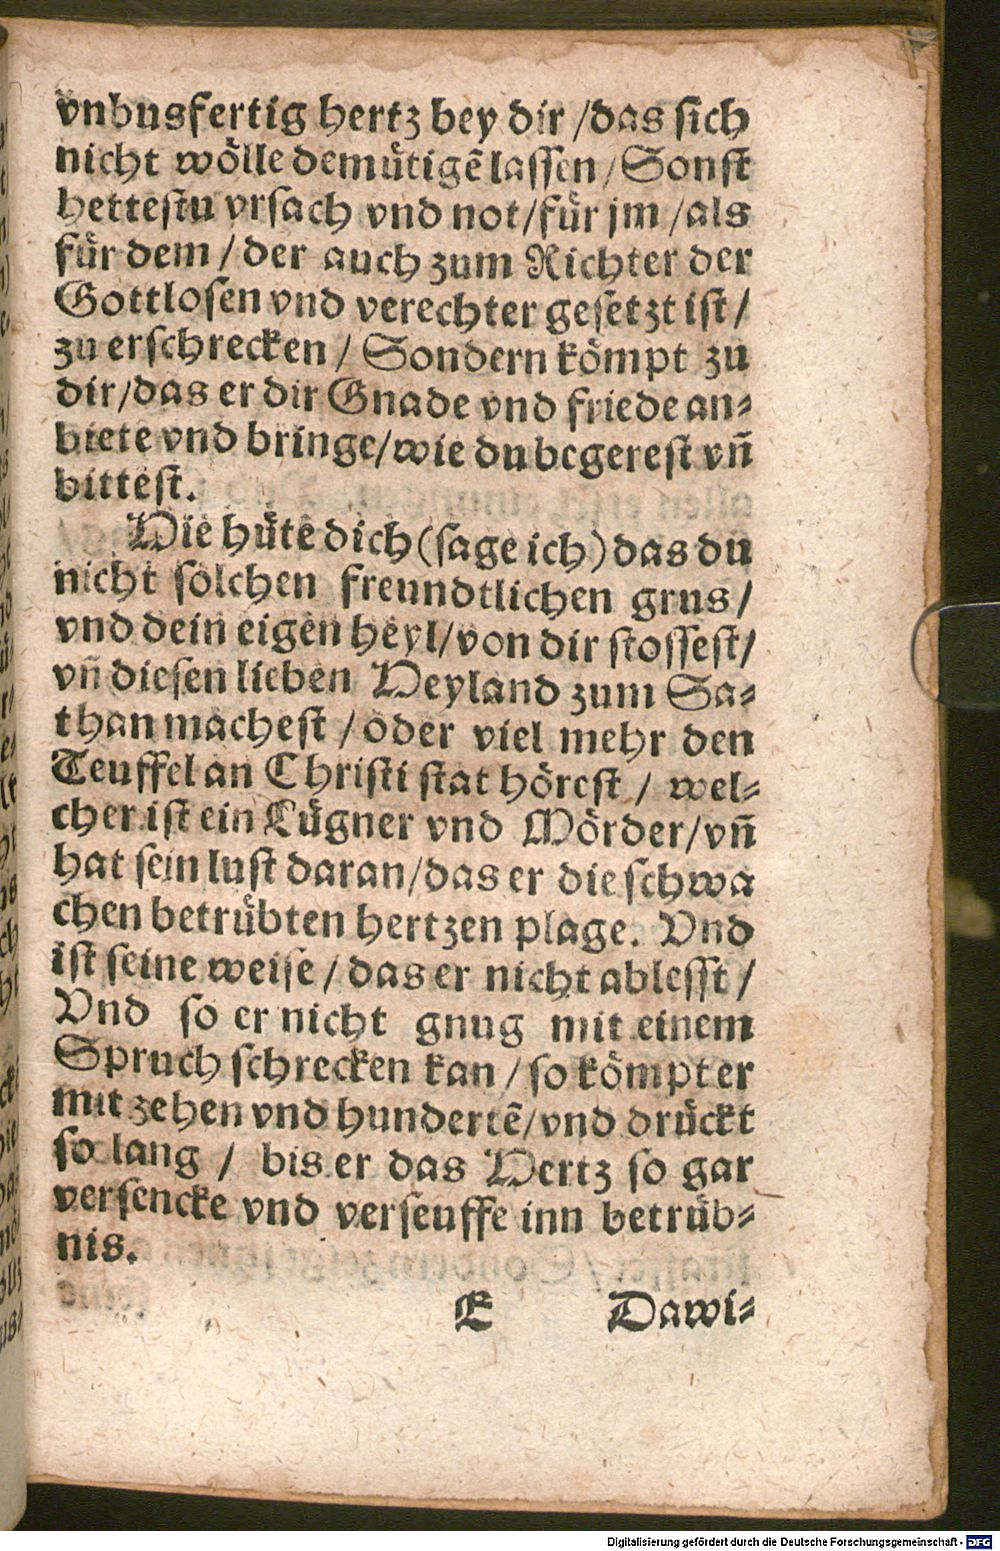 vnbusfertig hertz bey dir /das sich
nicht wölle demütigẽ lassen /Sonst
hettestu vrsach vnd not/für jm /als
für dem / der auch zum Richter der
Gottlosen vnd verechter gesetzt ist/
zu erschrecken / Sondern kömpt zu
dir/das er dir Gnade vnd friede an-
biete vnd bringe/wie du begerest vñ
bittest.
Hie hüte dich (sage ich) das du
nicht solchen freundtlichen grus/
vnd dein eigen heyl/von dir stossest/
vñ diesen lieben Heyland zum Sa-
than machest / oder viel mehr den
Teuffel an Christi stat hörest / wel-
cher ist ein Lügner vnd Mörder/vñ
hat sein lust daran/das er die schwa
chen betrübten hertzen plage. Vnd
ist seine weise / das er nicht ablesst /
Vnd so er nicht gnug mit einem
Spruch schrecken kan / so kömpt er
mit zehen vnd hundertẽ/vnd drückt
so lang / bis er das Hertz so gar
versencke vnd verseuffe inn betrüb-
nis.
E Dawi-
Digitalisierung gefördert durch die Deutsche Forschungsgemeinschaft - DFG